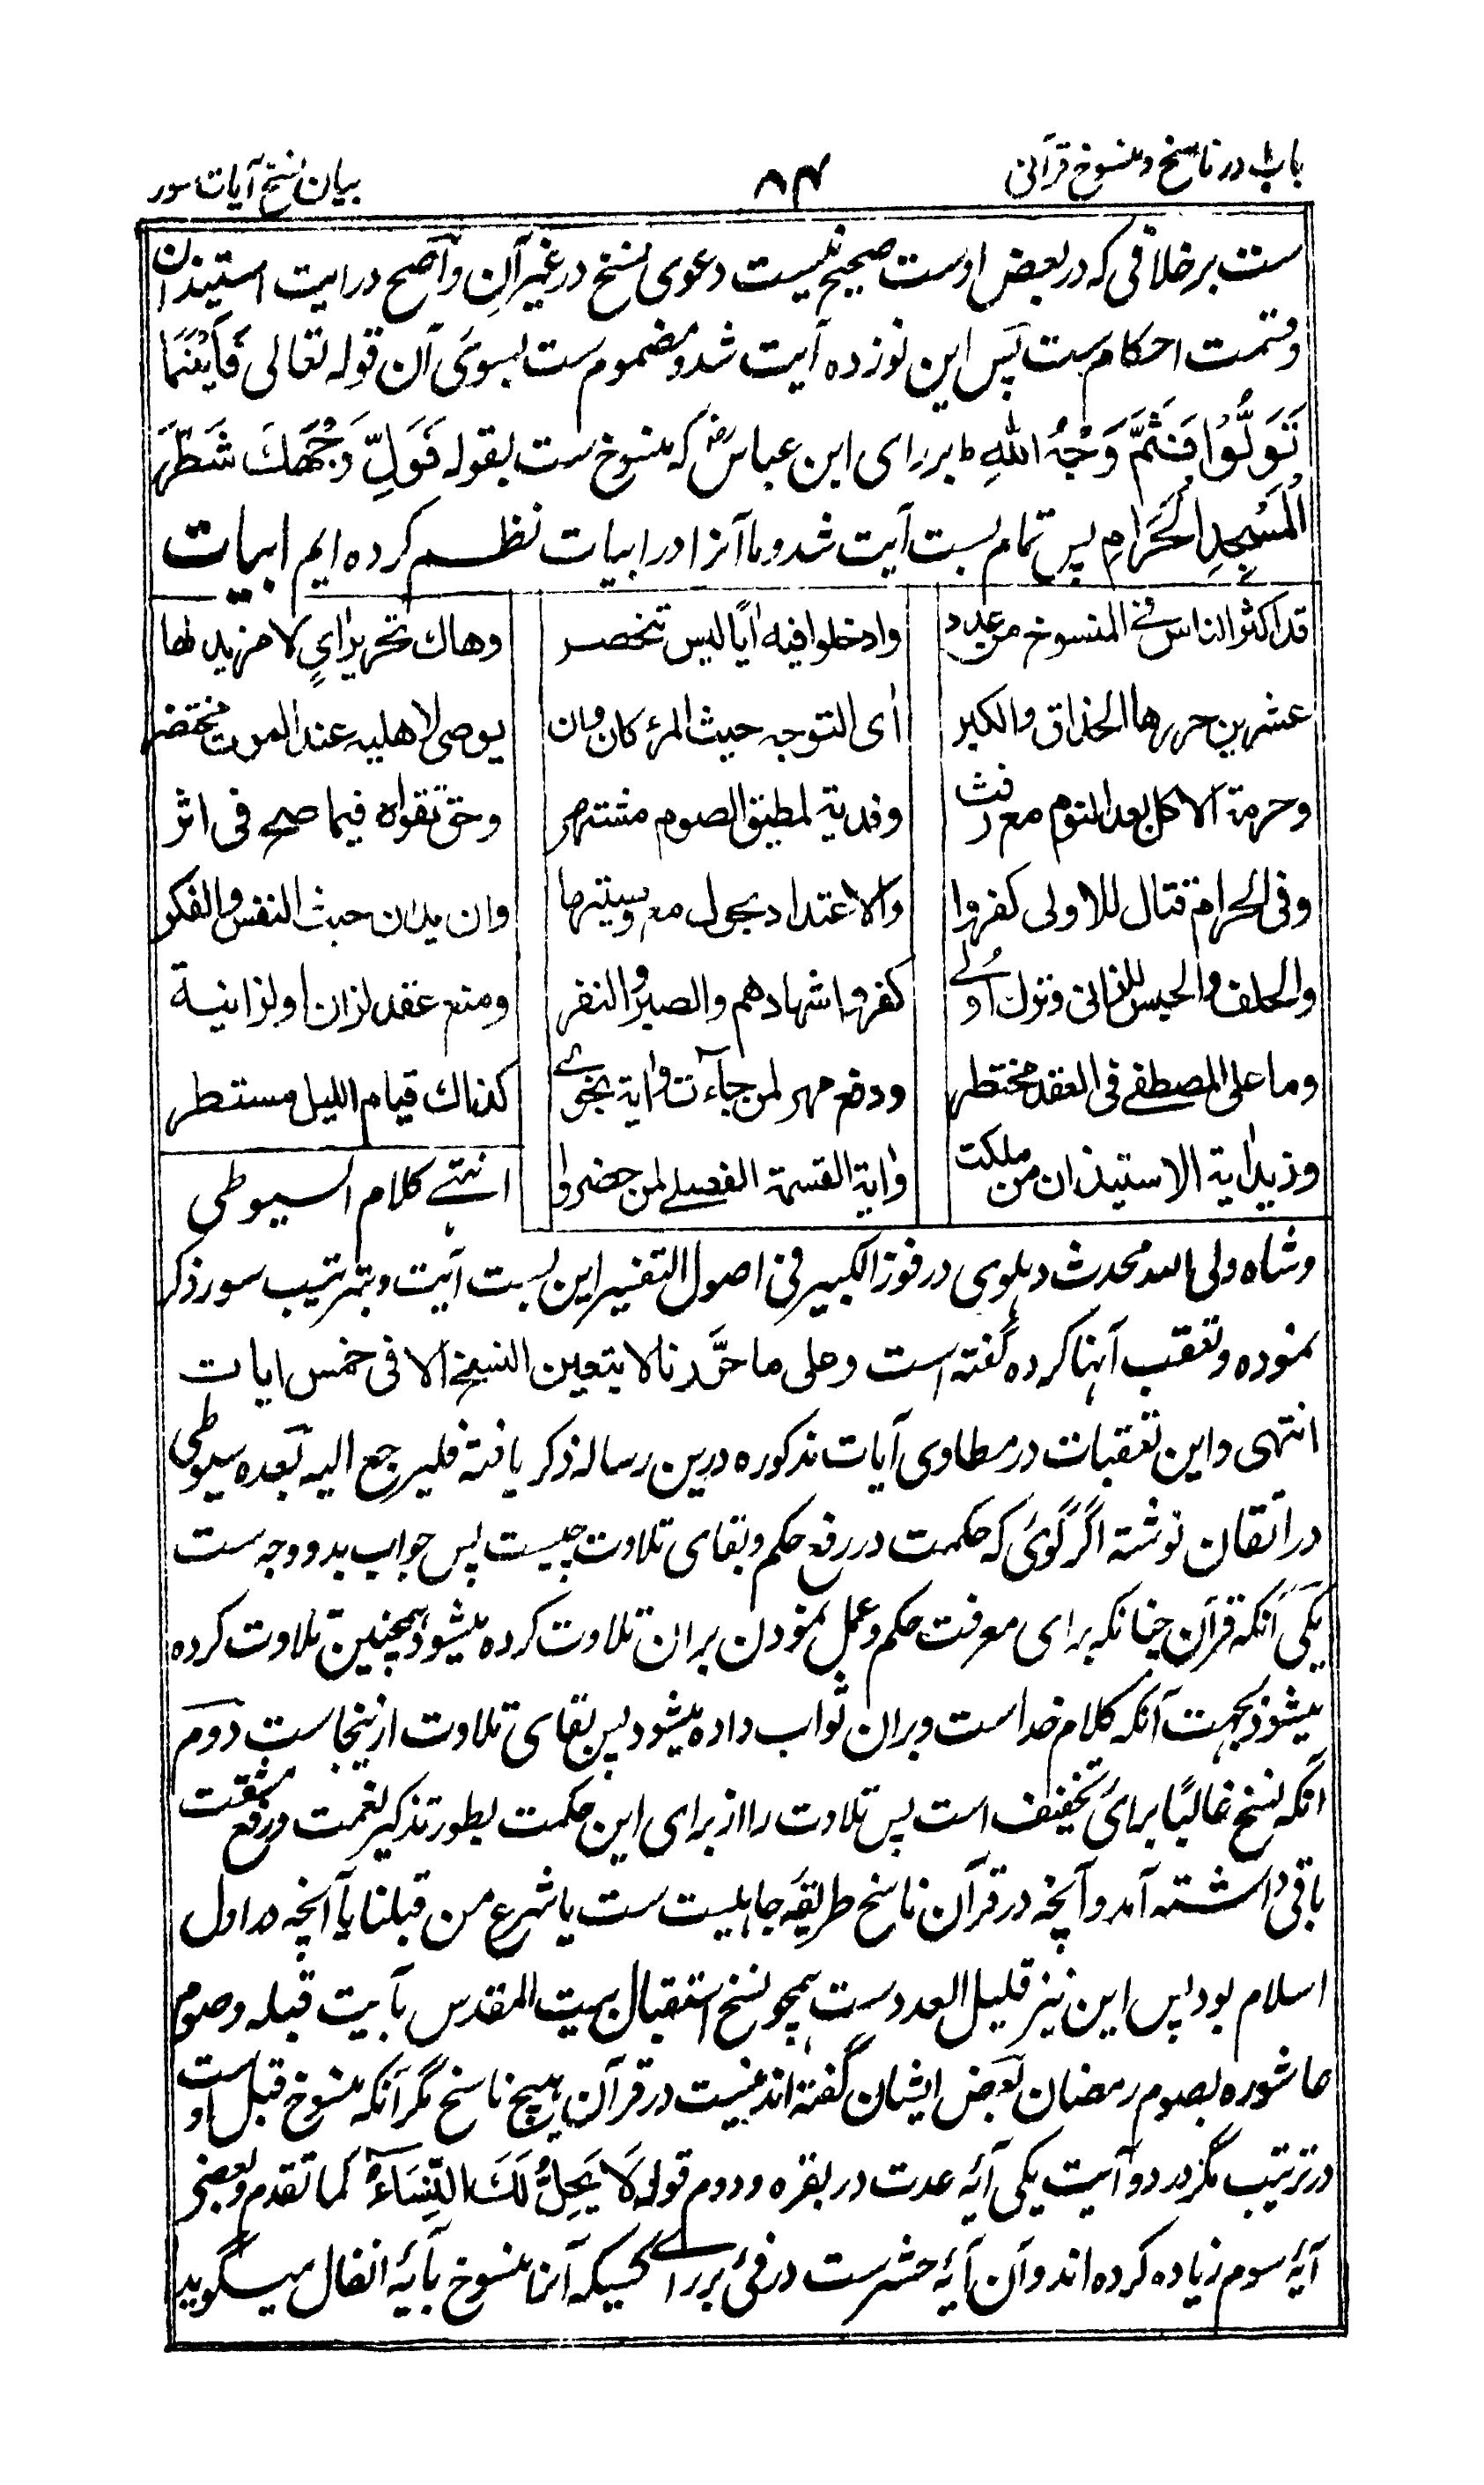 باب در ناسخ و منسوخ قرآنی
۸۴
بیان نسخ آیات سور
ست بر خلافی که در بعض اوست صحیح نیست دعوی نسخ در غیر آن و اصح در ایت استیذان
و قسمت احکام ست پس این نوزده آیت شد و مضموم ست بسوی آن قوله تعالی فَاَیْنَمَا
تُوَلُّوْا فَثَمَّ وَجْهُ اللّٰهِ ط بر رای ابن عباس رض که منسوخ ست بقوله فَوَلِّ وَجْهَكَ شَطْرَ
الْمَسْجِدِ الْحَرَامِ پس تمام بست آیت شد و ما آنرا در ابیات نظم کرده ایم ابیات
قد اکثر الناس فی المنسوخ من عدد
وادخلوا فیه اٰیًا لیس تنحصر
وهاك تحریر اٰیٍ لا مزید لها
عشرین حررها الحذاق والکبر
اٰی التوجه حیث المرء کان وان
یوصی لاهلیه عند الموت محتضر
وحرمة الاکل بعد النوم مع رفث
وفدیة لمطیق الصوم مشتهر
وحق تقواه فیما صح فی اثر
وفی الحرام قتال للاولی کفروا
والاعتداد بحول مع وصیتها
وان یدان حدیث النفس والفکر
والحلف والحبس للزانی وترك اُولے
کفروا اشهادهم والصبر والنفر
ومنع عقد لزان اولزانیة
وما علی المصطفے فی العقد محتظر
ودفع مهر لمن جاءت واٰیة نجوے
کذاك قیام اللیل مستطر
وزید اٰیة الاستیذان من ملکت
واٰیة القسمة الفضلے لمن حضروا
انتهے کلام السیوطی
و شاه ولی الله محدث دهلوی در فوز الکبیر فی اصول التفسیر این بست آیت و بترتیب سور ذکر
نموده و تعقب آنها کرده گفته است وعلی ما حرَّرنا لا یتعین النسخ الا فی خمس ایات
انتهی و این تعقبات در مطاوی آیات مذکوره درین رساله ذکر یافته فلیرجع الیه بعده سیوطی
در اتقان نوشته اگر گوئی که حکمت در رفع حکم و بقای تلاوت چیست پس جواب بدو وجه ست
یکی آنکه قرآن چنانکه برای معرفت حکم و عمل نمودن بران تلاوت کرده میشود همچنین تلاوت کرده
میشود بجهت آنکه کلام خداست و بران ثواب داده میشود پس بقای تلاوت ازینجاست دوم
آنکه نسخ غالبًا برای تخفیف است پس تلاوت را از برای این حکمت بطور تذکیر نعمت و رفع مشقت
باقی داشته آمد و آنچه در قرآن ناسخ طریقه جاهلیت ست یا شرع من قبلنا یا آنچه در اول
اسلام بود پس این نیز قلیل العدد ست همچو نسخ استقبال بیت المقدس بآیت قبله و صوم
عاشوره بصوم رمضان بعض ایشان گفته اند نیست در قرآن هیچ ناسخ مگر آنکه منسوخ قبل اوست
در ترتیب مگر در دو آیت یکی آیه عدت در بقره و دوم قوله لَا یَحِلُّ لَكَ النِّسَاءُ کما تقدم و بعضی
آیه سوم زیاده کرده اند و آن آیه حشرست در فئ بر رای کسیکه آنرا منسوخ بآیه انفال میگوید